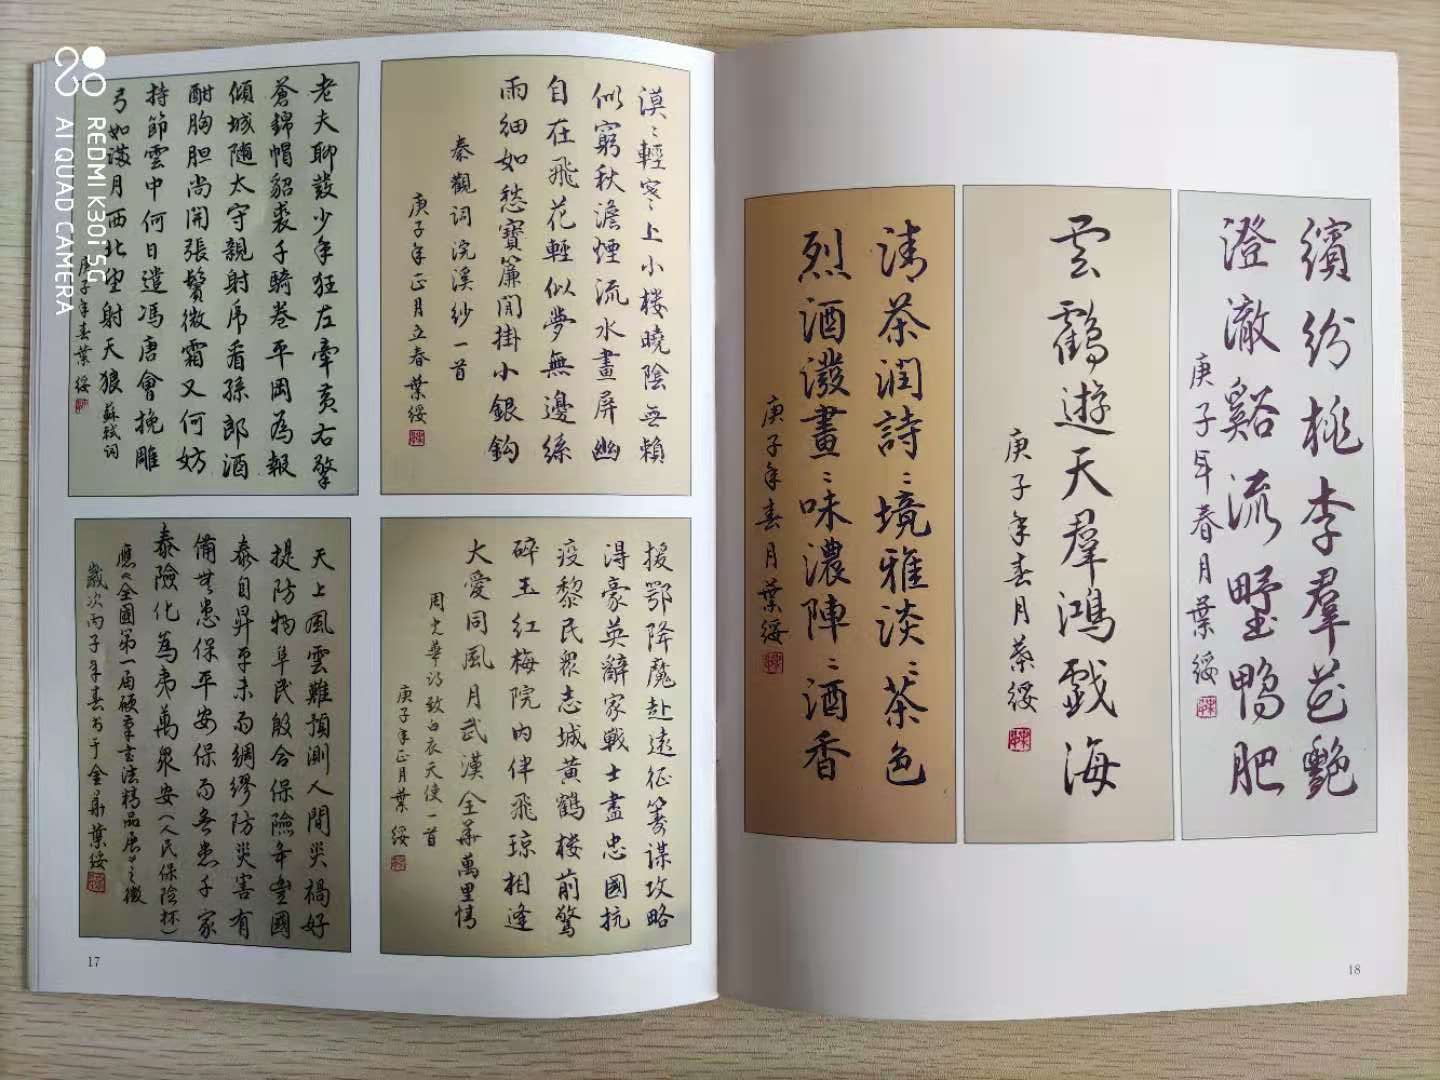 老夫聊發少年狂左牽黃右擎
蒼錦帽貂裘千騎卷平岡為報
傾城隨太守親射虎看孫郎酒
酣胸胆尚開張鬢微霜又何妨
持節雲中何日遣馮唐會挽雕
弓如滿月西北望射天狼 蘇軾詞
庚子年春葉綏
漠〻輕寒上小楼曉陰無賴
似窮秋澹煙流水畫屏幽
自在飛花輕似夢無邊絲
雨細如愁寶簾閒掛小銀鈎
秦觀詞浣溪纱一首
庚子年正月立春葉綏
天上風雲難預測人間災禍好
提防物阜民殷合保險年豐國
泰自昇平未雨綢繆防災害有
備無患保平安保而無患千家
泰險化為夷萬眾安(人民保险杯)
應《全國第一届硕章书法精品展》之徵
歲次丙子年春书于金華葉綏
援鄂降魔赴遠征籌謀攻略
得豪英辭家戰士盡忠國抗
疫黎民眾志城黃鶴楼前驚
碎玉红梅院内伴飛琼相逢
大愛同風月武漢全華萬里情
周光華詩致白衣天使一首
庚子年正月葉綏
17
清茶潤詩〻境雅淡〻茶色
烈酒潑畫〻味濃陣〻酒香
庚子年春月葉綏
雲鶴遊天羣鴻戲海
庚子年春月葉綏
繽纷桃李羣芳艷
澄澈谿流野鴨肥
庚子年春月葉綏
18
REDMI K30i 5G
AI QUAD CAMERA